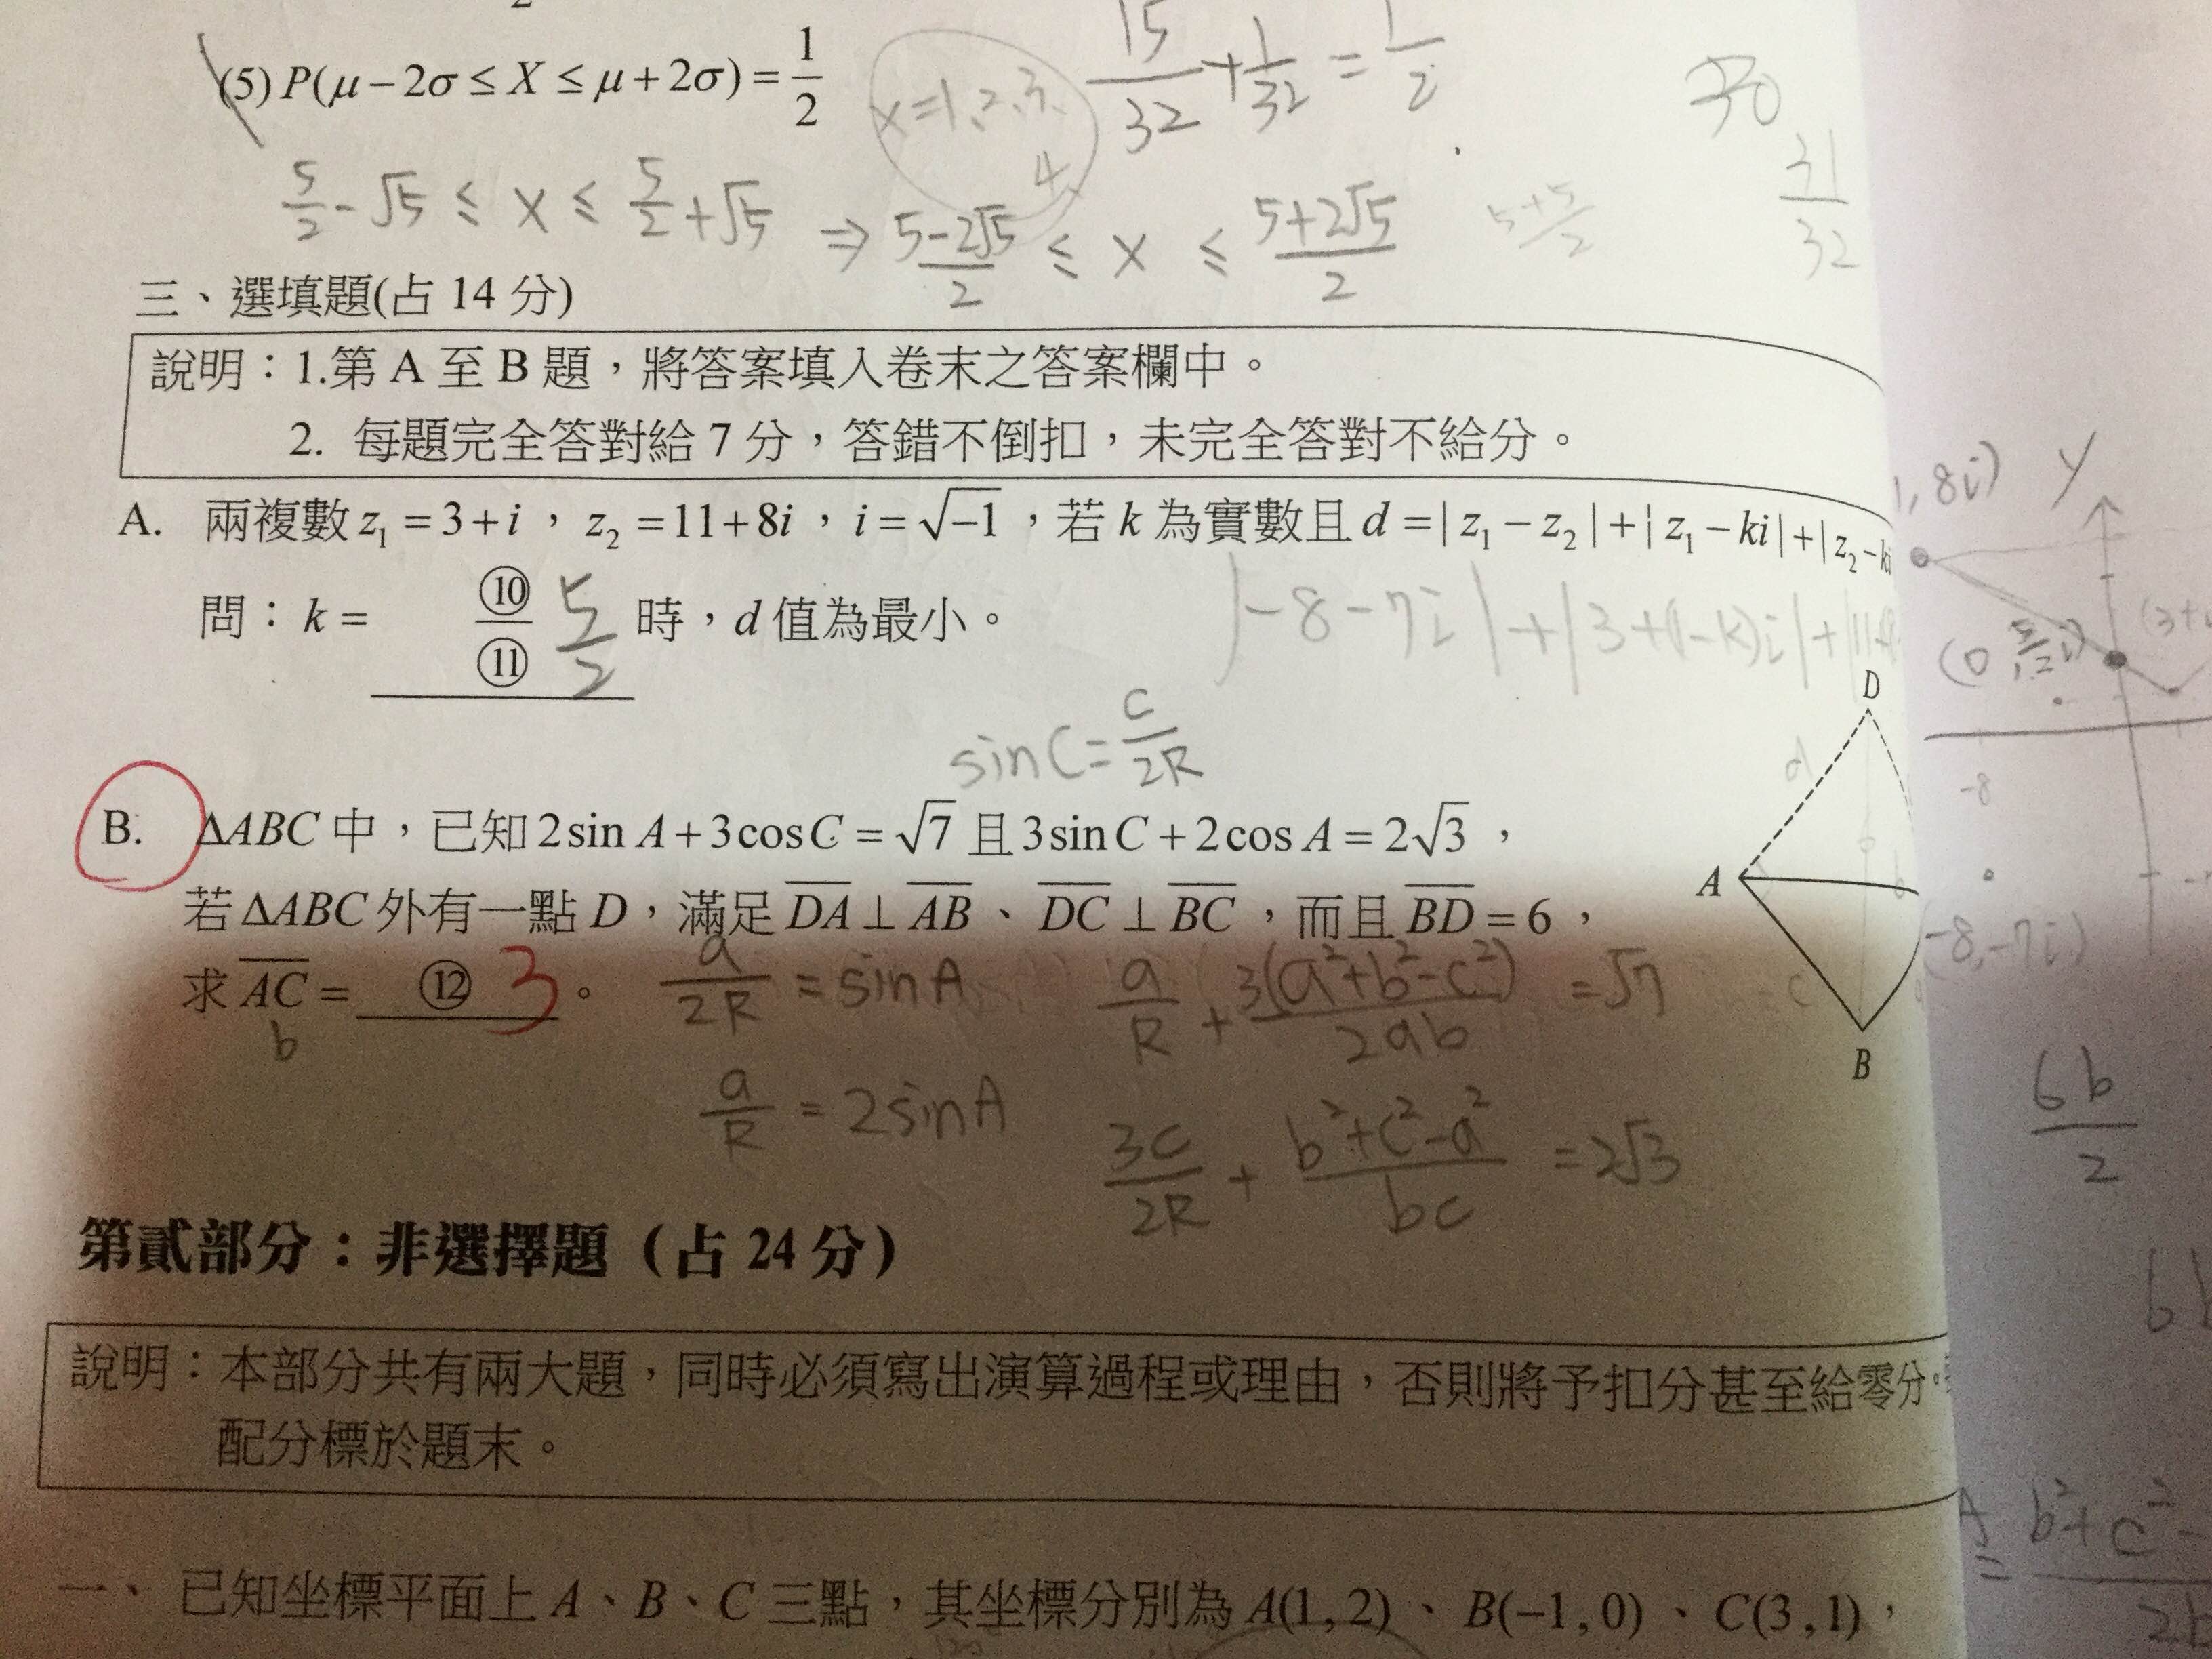 (5) P(μ−2σ ≤ X ≤ μ+2σ) = 1/2
x=1,2,3,4
15/32 + 1/32 = 1/2
31/32
5/2 − √5 ≤ x ≤ 5/2 + √5 ⇒ (5−2√5)/2 ≤ x ≤ (5+2√5)/2
三、選填題(占 14 分)
說明：1.第 A 至 B 題，將答案填入卷末之答案欄中。
2. 每題完全答對給 7 分，答錯不倒扣，未完全答對不給分。
A. 兩複數 z₁ = 3+i ， z₂ = 11+8i ， i = √−1 ，若 k 為實數且 d = | z₁ − z₂ | + | z₁ − ki | + | z₂ − ki
1, 8i) y
問： k = ⑩/⑪ 5/2 時，d 值為最小。
|−8−7i| + |3+(1−k)i| +
(0, 5/2 i) (3+i
sin C = c/2R
D
d
−8
B. ΔABC 中，已知 2sin A + 3cos C = √7 且 3sin C + 2cos A = 2√3 ，
A b
若 ΔABC 外有一點 D，滿足 DA ⊥ AB 、 DC ⊥ BC ，而且 BD = 6 ，
−8, −7i)
求 AC = ⑫ 3 。
b
a/2R = sin A
a/R + 3(a²+b²−c²)/2ab = √7
c
B
6b/2
a/R = 2sin A
3c/2R + (b²+c²−a²)/bc = 2√3
第貳部分：非選擇題（占 24 分）
說明：本部分共有兩大題，同時必須寫出演算過程或理由，否則將予扣分甚至給零分。
配分標於題末。
A = b²+c²−
一、 已知坐標平面上 A、B、C 三點，其坐標分別為 A(1, 2) 、 B(−1, 0) 、 C(3, 1) ，